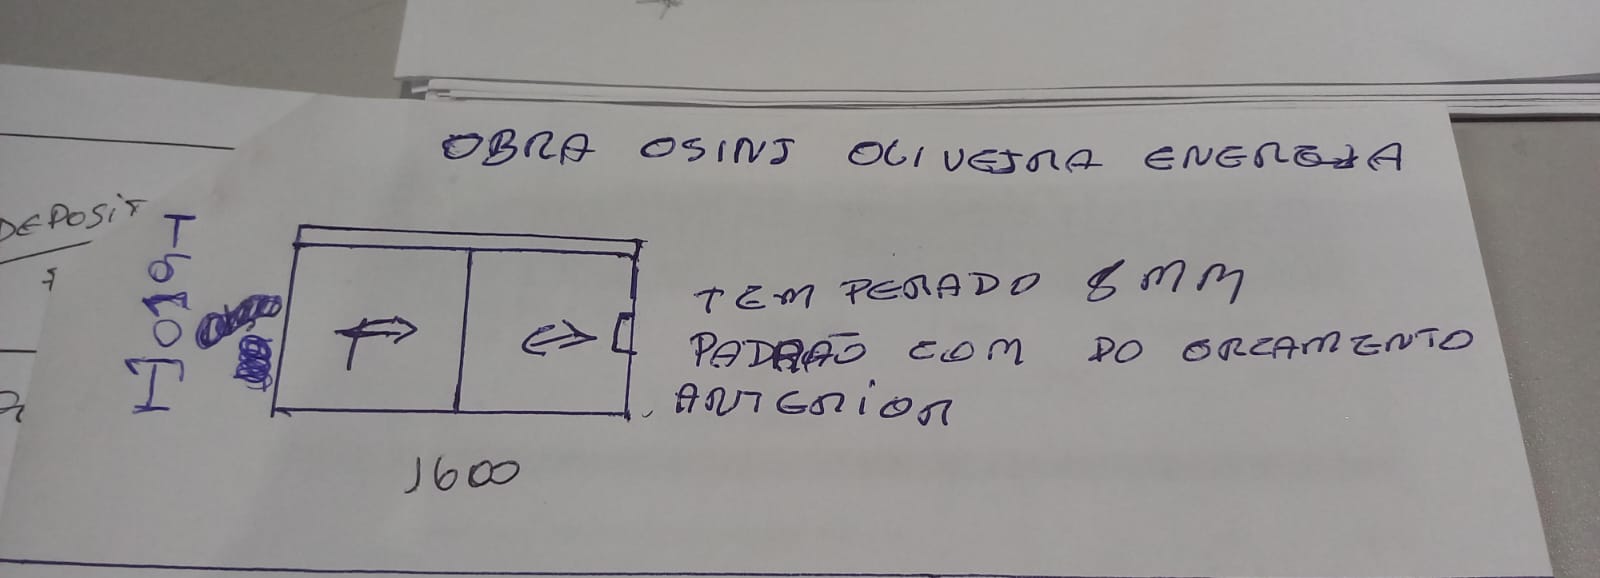 OBRA OSINI OLIVEIRA ENERGIA
DEPOSIT
TEMPERADO 8MM
PADRÃO COM DO ORCAMENTO
ANTERIOR
1600